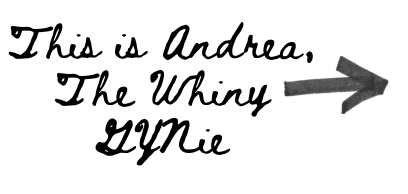 This is Andrea,
The Whiny
GYNie